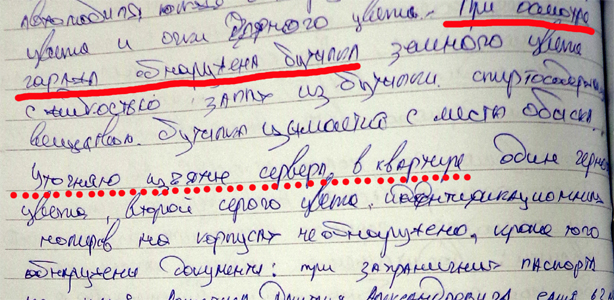 цвета и очки черного цвета. При осмотре
гаража обнаружена бутылка зеленого цвета
с жидкостью запах из бутылки спиртосодержа
веществом. Бутылка изымается с места обыска.
Уточняю изъятие сервера в квартире один черного
цвета, второй серого цвета, идентификационных
номеров на корпусах не обнаружено, кроме того
обнаружены документы: три заграничных паспорта